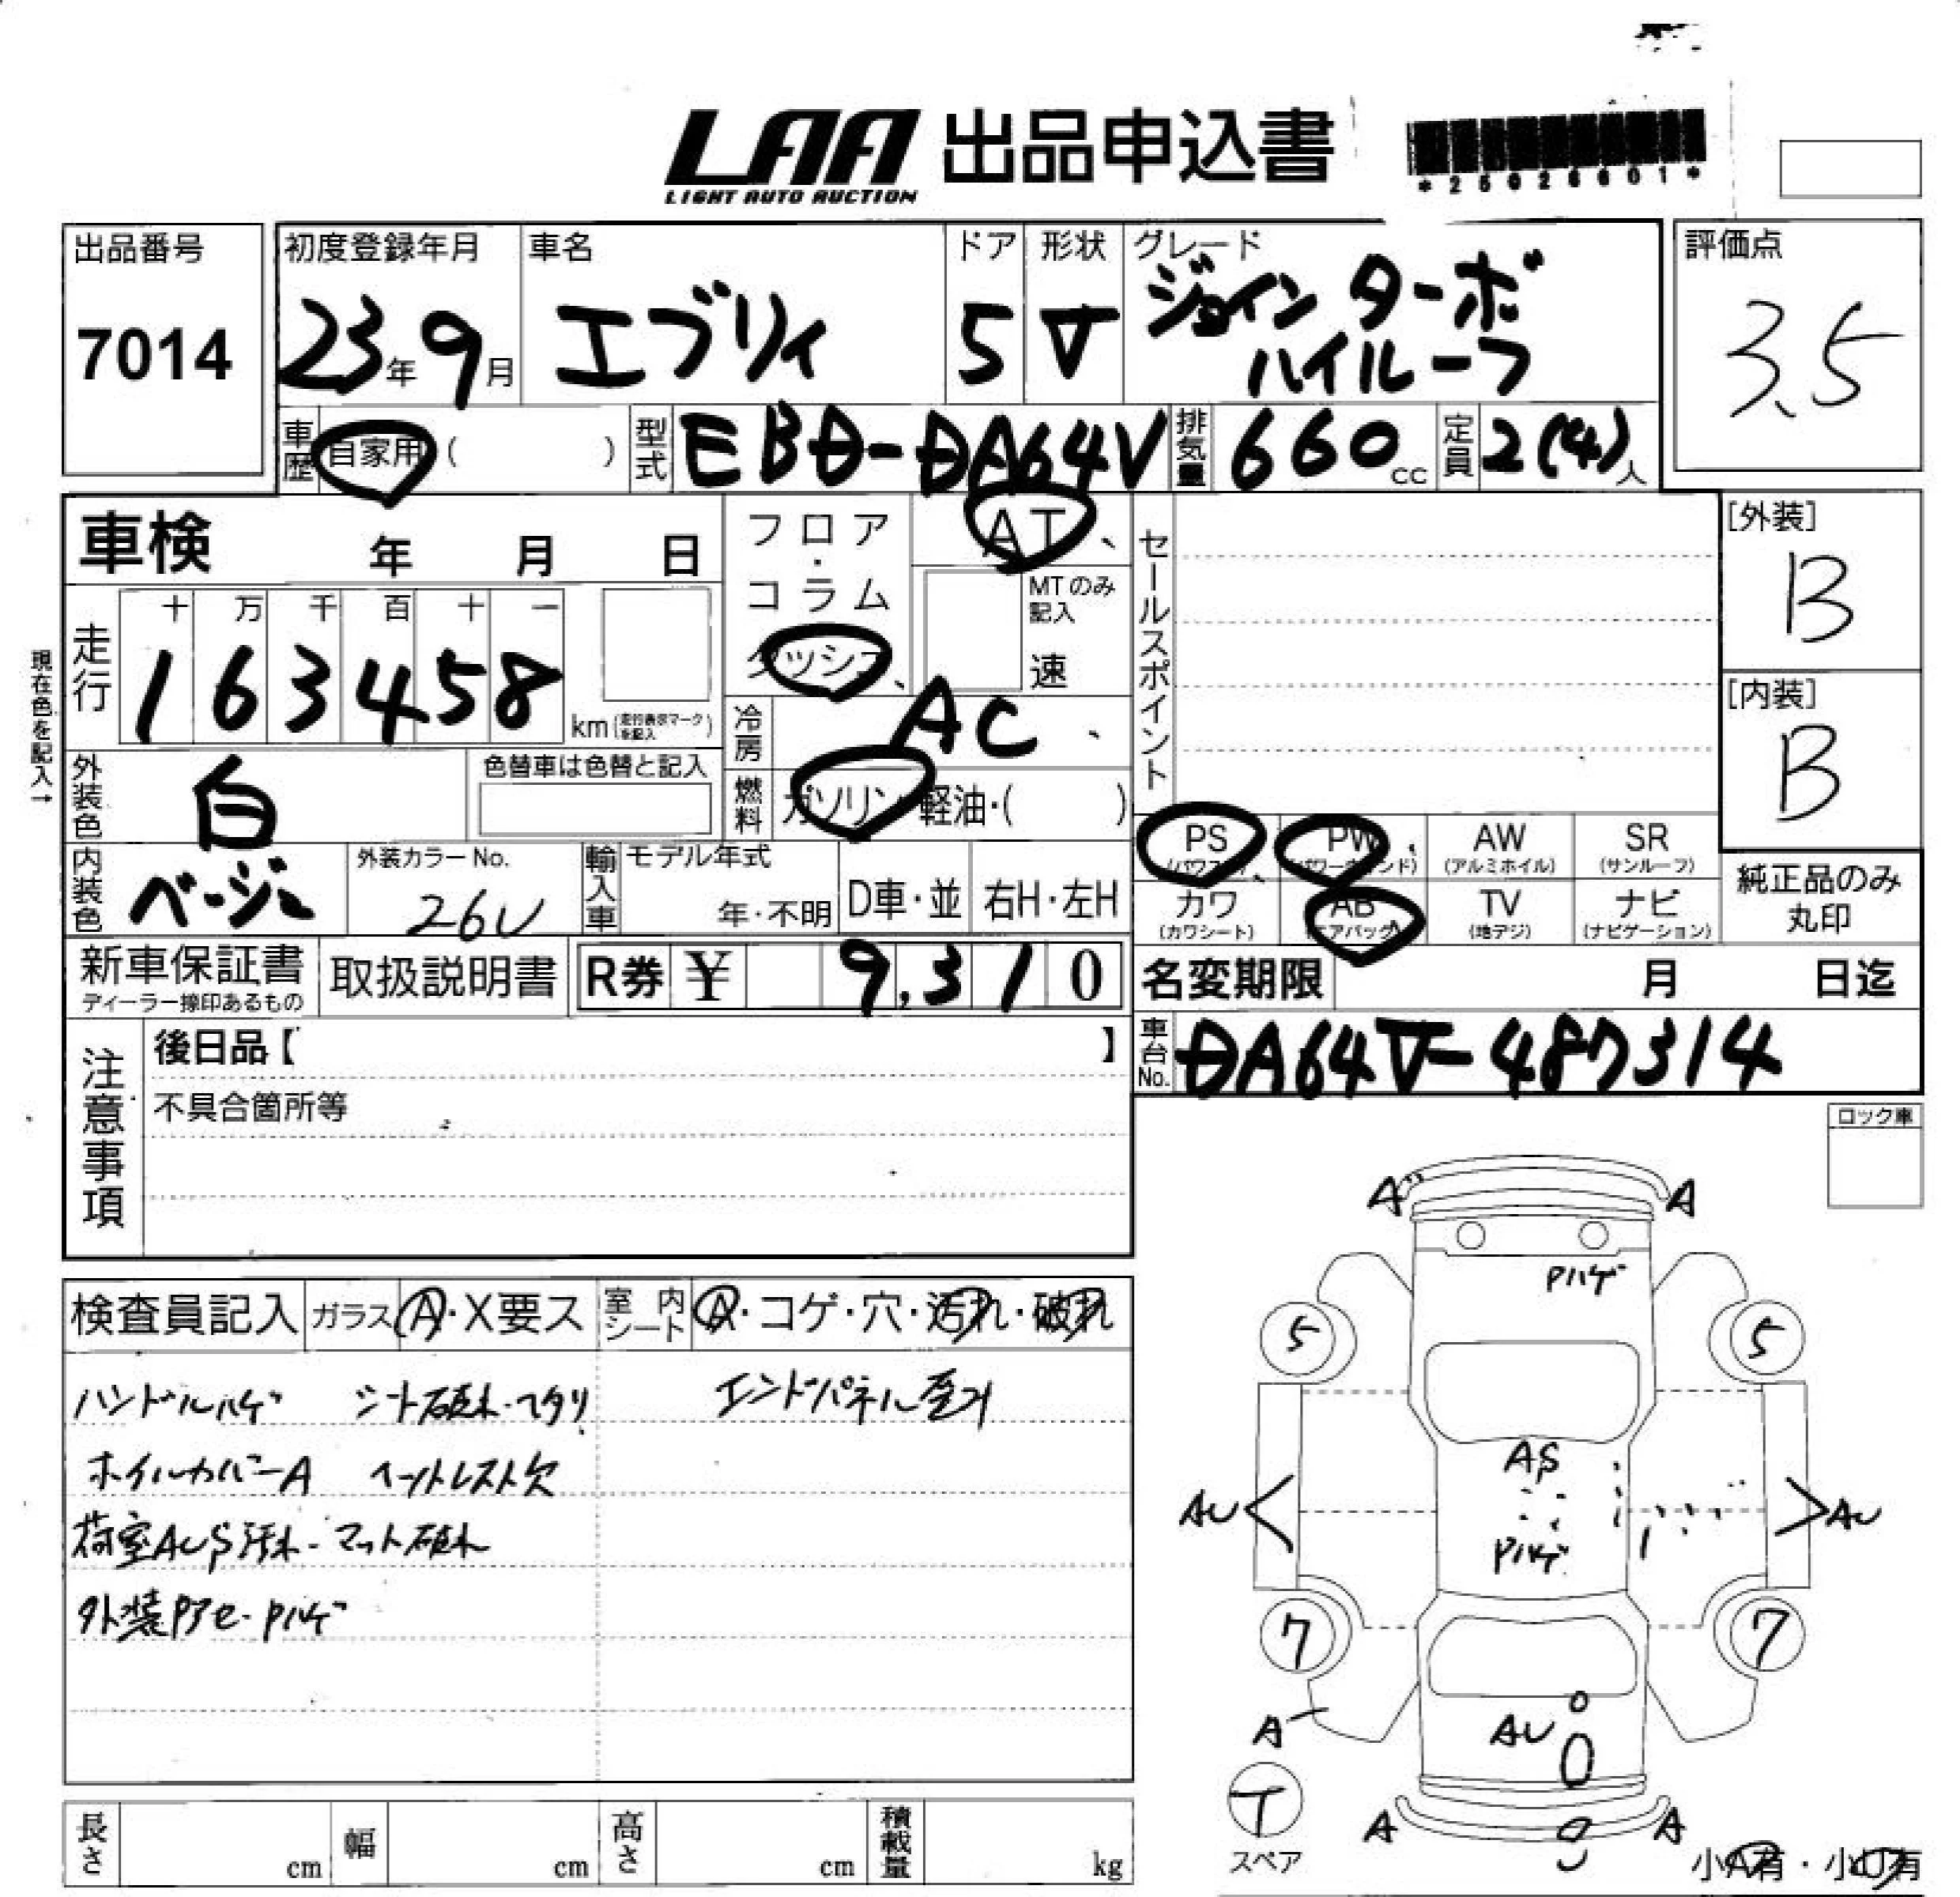 LAA 出品申込書
LIGHT AUTO AUCTION
*25026601*
出品番号
7014
初度登録年月
23年9月
車名
エブリィ
ドア
5
形状
V
グレード
ジョイン ターボ
ハイルーフ
評価点
3.5
車歴
自家用 ( )
型式
EBD-DA64V
排気量
660cc
定員
2(4)人
車検 年 月 日
フロア・コラム
ダッシュ
AT
MTのみ記入
速
セールスポイント
[外装]
B
[内装]
B
現在色を記入→
走行
十 万 千 百 十 一
1 6 3 4 5 8
km(走行表示マークを記入)
冷房
AC
外装色
白
色替車は色替と記入
燃料
ガソリン・軽油・( )
内装色
ベージュ
外装カラーNo.
26U
輸入車
モデル年式
年・不明
D車・並
右H・左H
PS
(パワステ)
PW
(パワーウィンド)
AW
(アルミホイル)
SR
(サンルーフ)
カワ
(カワシート)
AB
(エアバッグ)
TV
(地デジ)
ナビ
(ナビゲーション)
純正品のみ
丸印
新車保証書
ディーラー捺印あるもの
取扱説明書
R券 ¥ 9,310
名変期限 月 日迄
車台No.
DA64V-487314
注意事項
後日品【 】
不具合箇所等
ロック車
検査員記入
ガラス A・X要ス
室内シート A・コゲ・穴・汚れ・破れ
ハンドルハゲ シート破れ・ヘタリ エンドパネル歪ミ
ホイルカバーA ヘットレスト欠
荷室AUS汚れ・マット破れ
外装Pアセ・Pハゲ
A A
Pハゲ
5 5
AS
AU AU
Pハゲ
7 7
A
AU
T
スペア
A A
小A有・小U有
長さ cm
幅 cm
高さ cm
積載量 kg